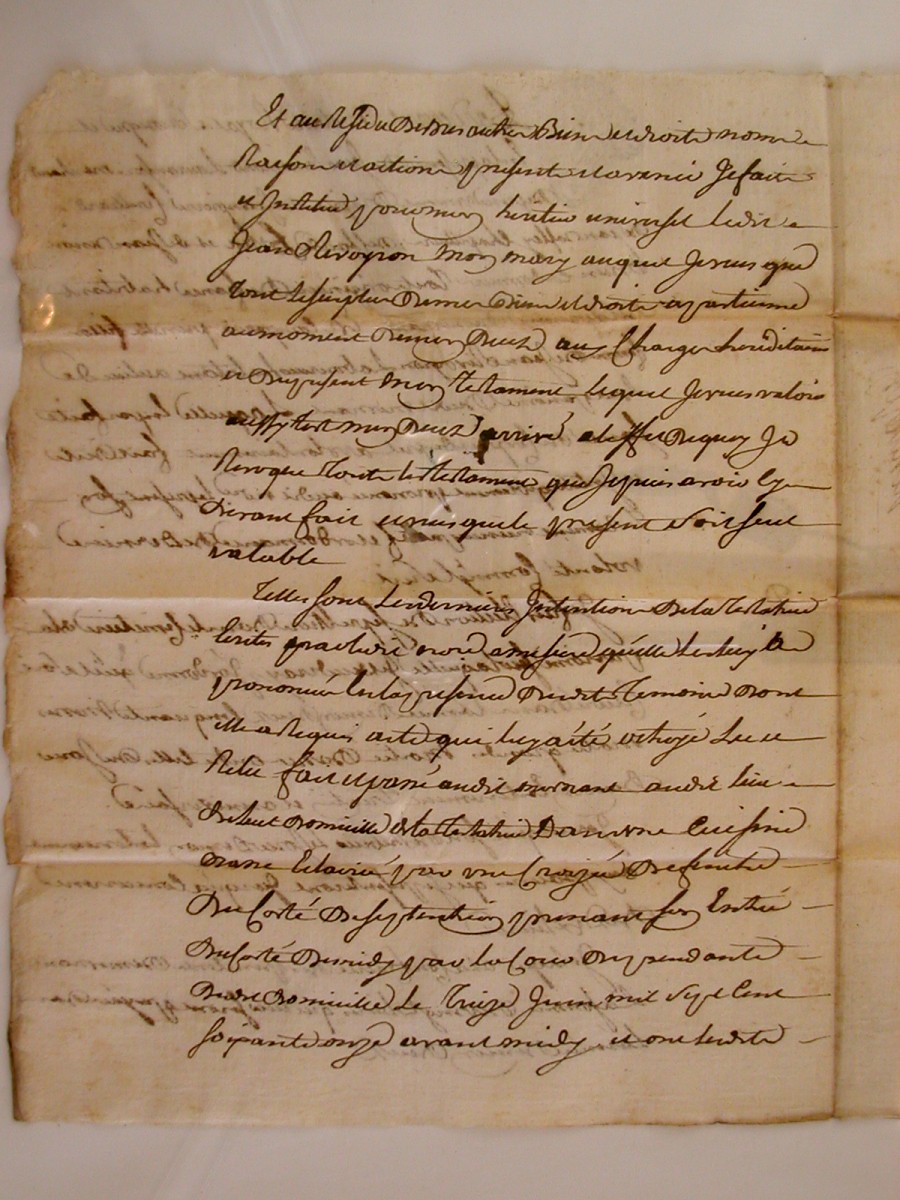 Et au Residu de tous autres Biens et droits noms
Raisons et actions present et avenir Je fait
et Institue pour mon heritier universel ledit
Jean Revoyron mon mary auquel Je veus que
tout le surplus de mes Biens et droits apartienne
au moment de mon decez aux Charges hereditaires
et du present mon testament lequel Je veus valoir
aussytost mon decez arrivé a l'effet de quoy Je
Revoque touts les testaments que Je puis avoir cy
devant fait et veus que le present soit seul
valable
Telles sont les dernieres Intentions de la Testatrice
Ecrites par ledit notaire a mesure qu'elle les luy a
prononcée En la presence desdits Temoins dont
elle a Requis acte qui luy a été octroyé Leu et
Releu fait et passé audit mornant audit lieu
dudit domicille de la testatrice Dans une Cuisine
basse Eclairée par une Croizée de fenestre
du Costé de septentrion prenant son Entrée
du Costé de midy par la Cour dependante
dudit domicille le treize Juin mil sept Cent
soixante onze avant midy et ont lesdits